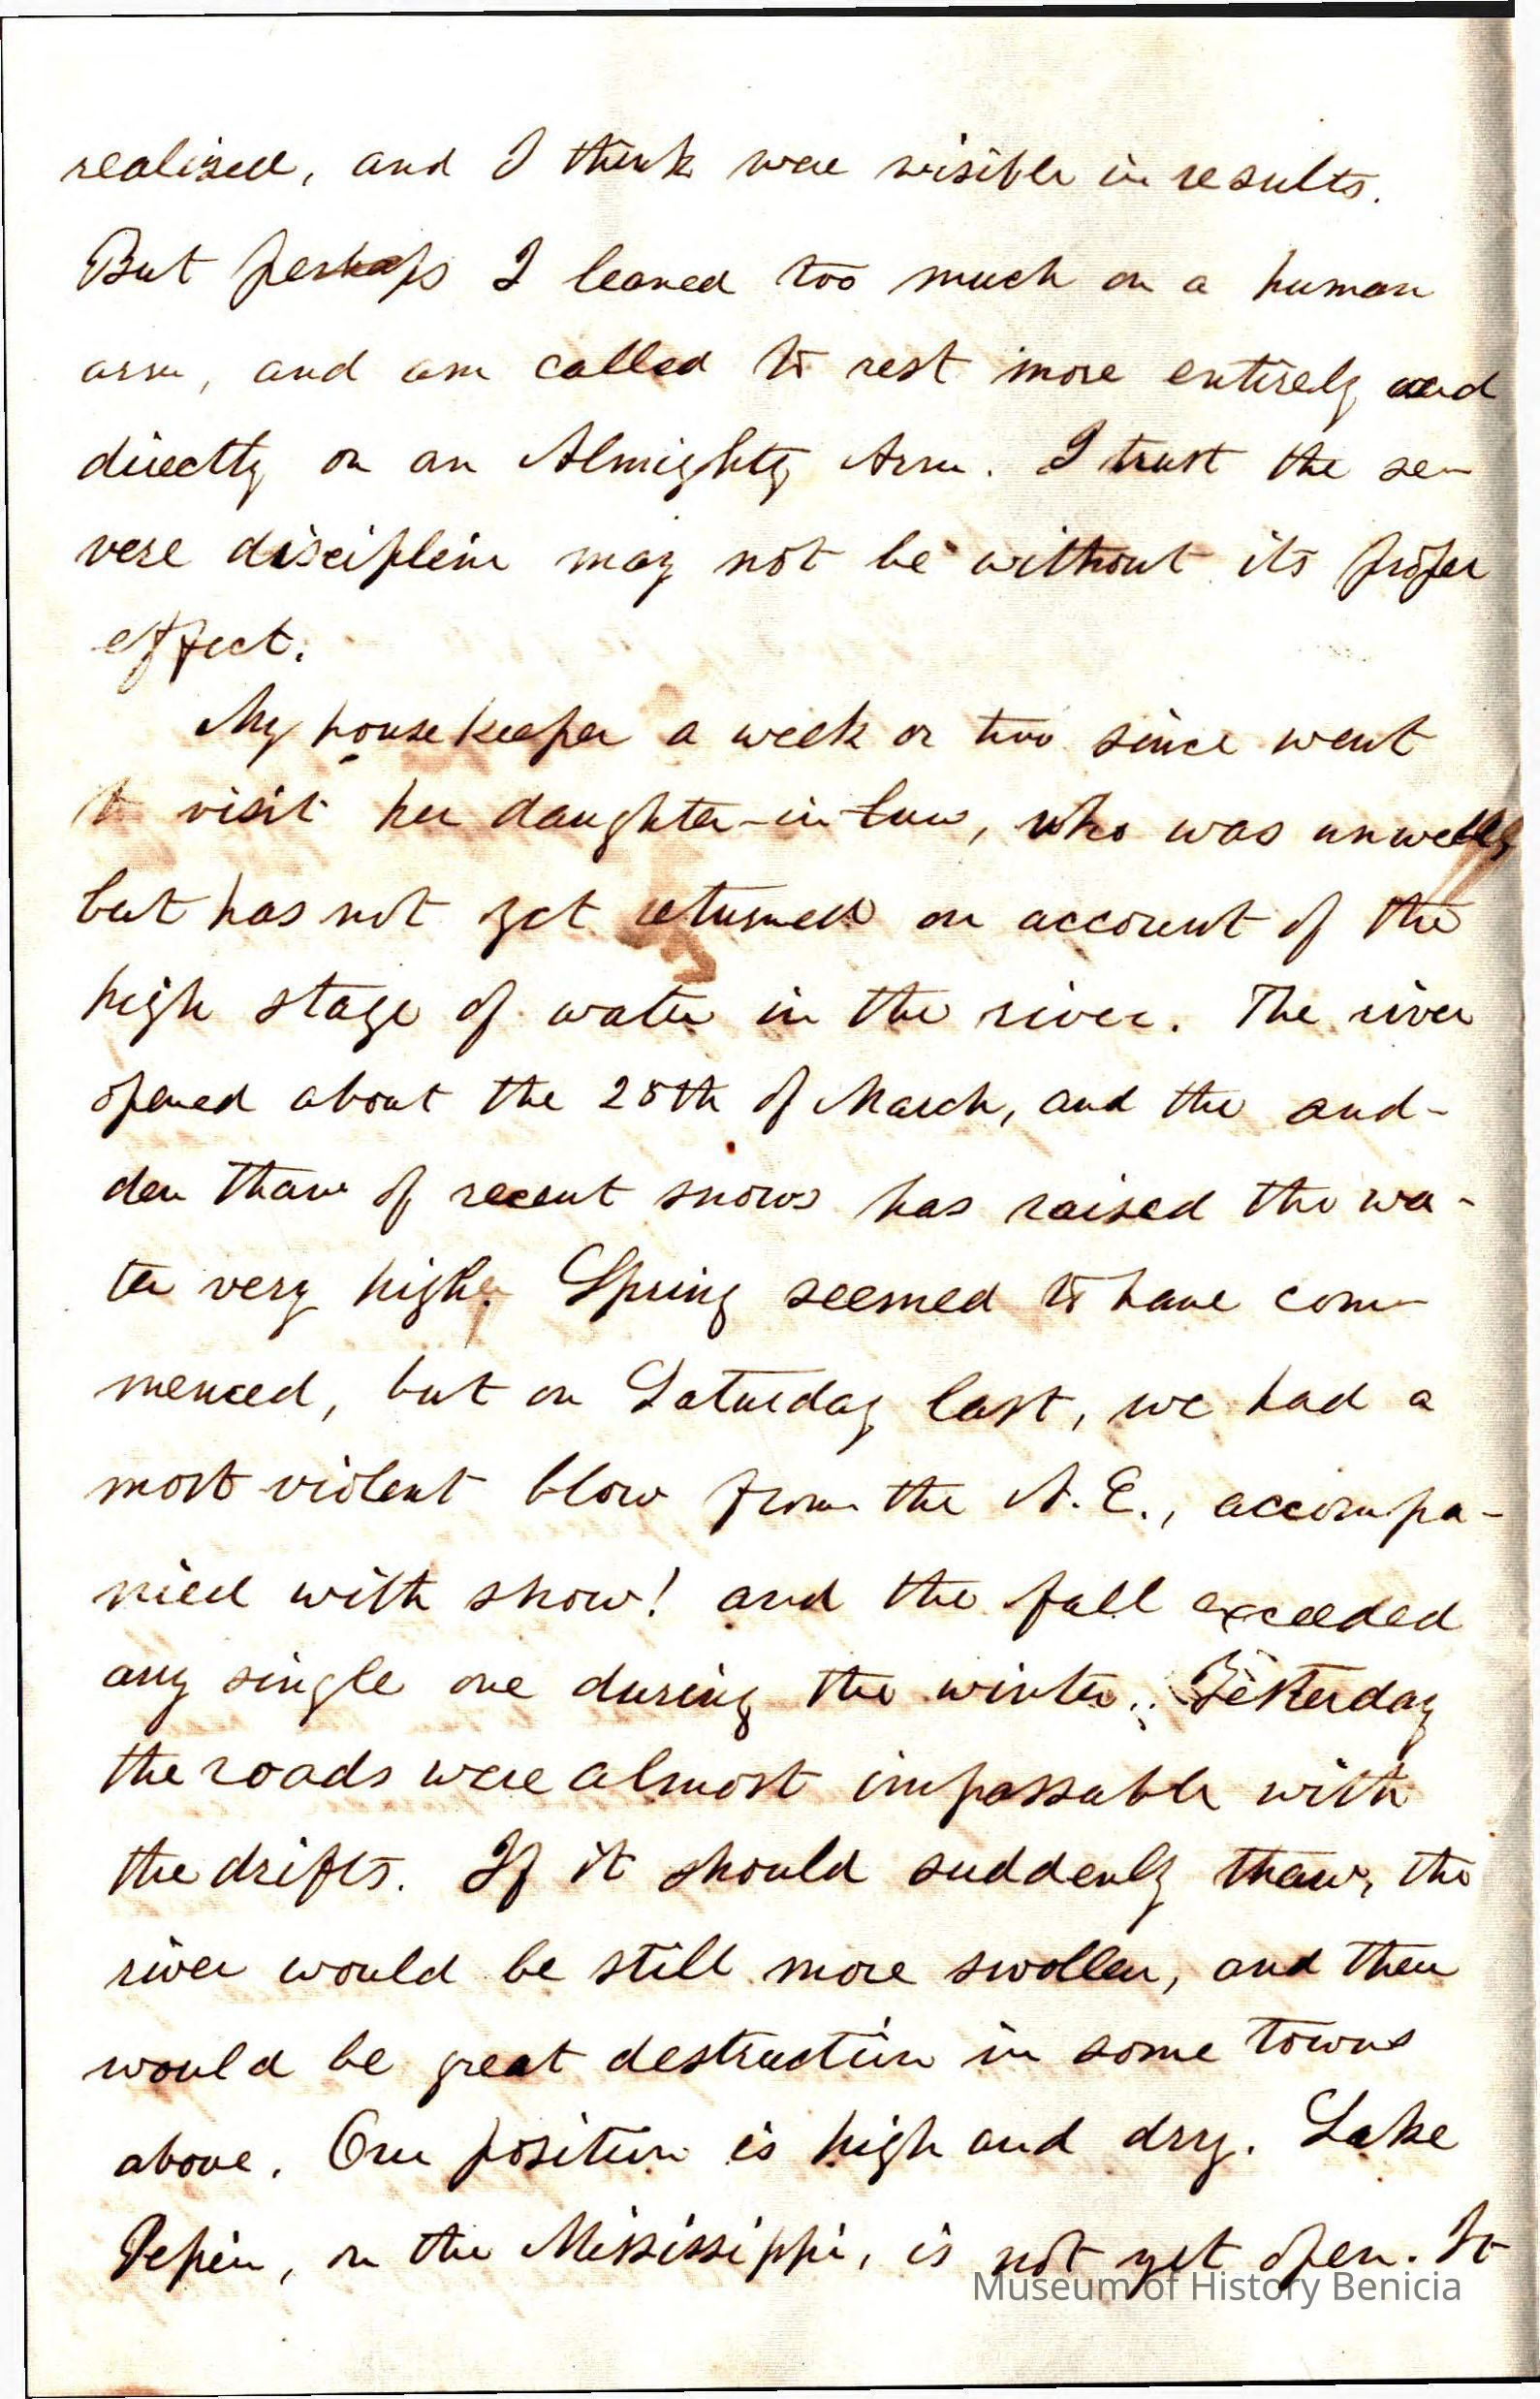 realized, and I think were visible in results.
But perhaps I leaned too much on a human
arm, and am called to rest more entirely and
directly on an Almighty Arm. I trust the se-
vere discipline may not be without its proper
effect.
My housekeeper a week or two since went
to visit her daughter-in-law, who was unwell,
but has not yet returned on account of the
high stage of water in the river. The river
opened about the 28th of March, and the sud-
den thaw of recent snows has raised the wa-
ter very high. Spring seemed to have com-
menced, but on Saturday last, we had a
most violent blow from the N.E., accompa-
nied with snow! and the fall exceeded
any single one during the winter. Yesterday
the roads were almost impassable with
the drifts. If it should suddenly thaw, the
river would be still more swollen, and there
would be great destruction in some towns
above. Our position is high and dry. Lake
Pepin, on the Mississippi, is not yet open. It
Museum of History Benicia